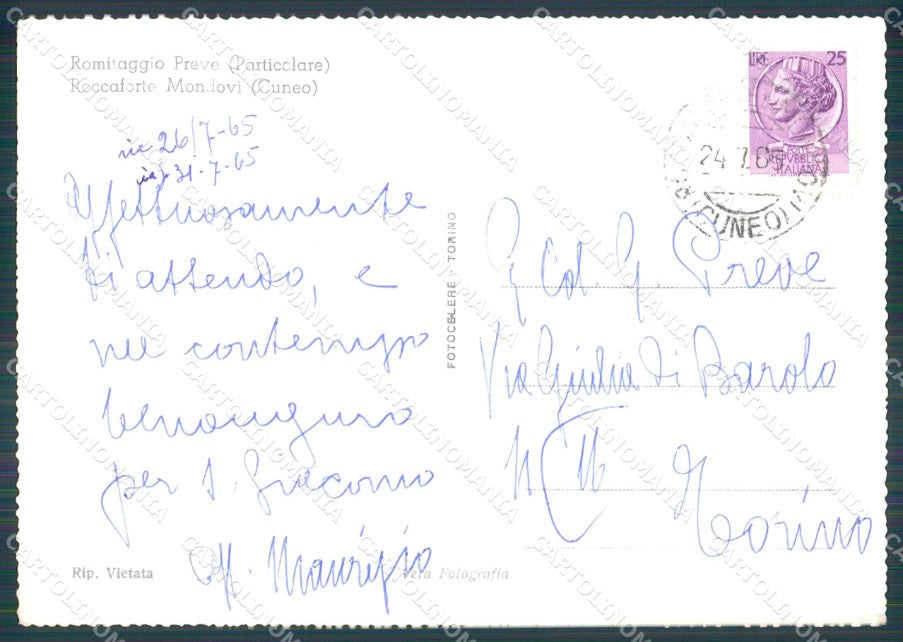 Romitaggio Preve (Particolare)
Roccaforte Mondovì (Cuneo)
ric 26/7-65
risp 31-7-65
Affettuosamente
ti attendo, e
nel contempo
benauguro
per S. Giacomo
Aff. Maurizio
Rip. Vietata
Vera Fotografia
FOTOCELERE TORINO
LIRE 25
POSTE
REPVBBLICA
ITALIANA
24.7.65
(CUNEO)
Col. G. Preve
Via Giulia di Barolo
N
Torino
CARTOLINOMANIA